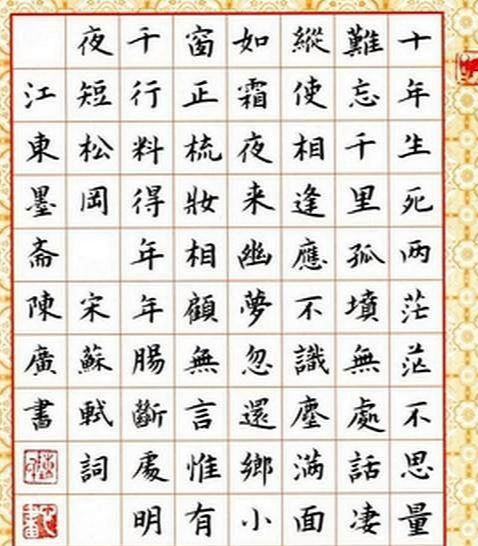 十年生死两茫茫不思量
難忘千里孤墳無處話凄
縱使相逢應不識塵滿面
如霜夜来幽夢忽還鄉小
窗正梳妝相顧無言惟有
千行料得年年腸斷處明
夜短松岡 宋蘇軾詞
江東墨斋陳廣書